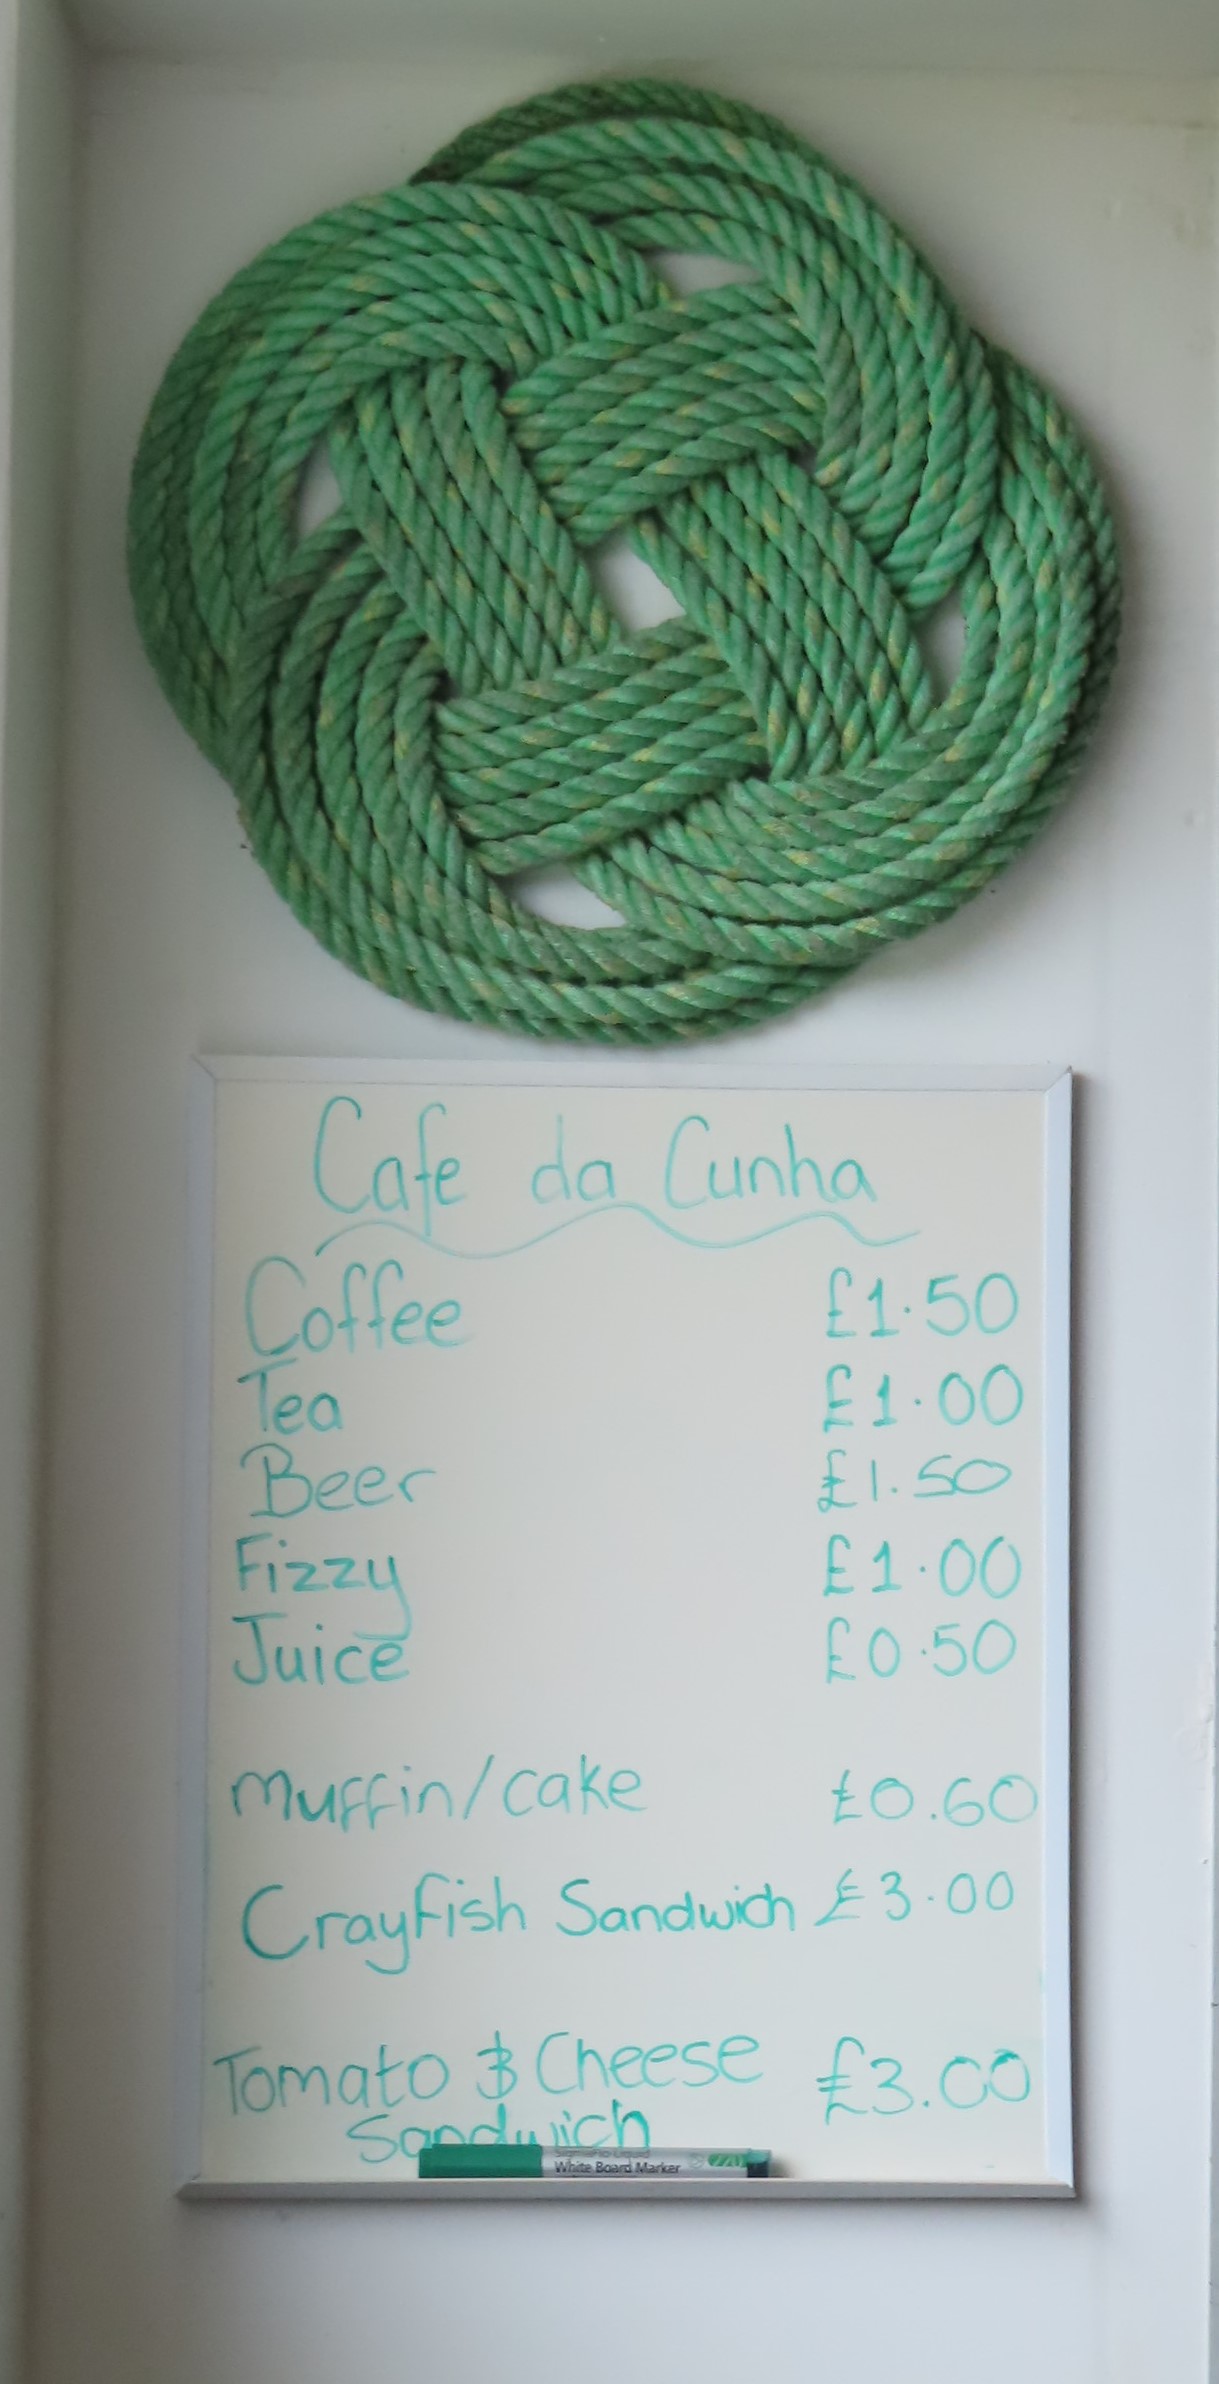 Cafe da Cunha
Coffee £1.50
Tea £1.00
Beer £1.50
Fizzy £1.00
Juice £0.50
Muffin/cake £0.60
Crayfish Sandwich £3.00
Tomato & Cheese £3.00
Sandwich
White Board Marker